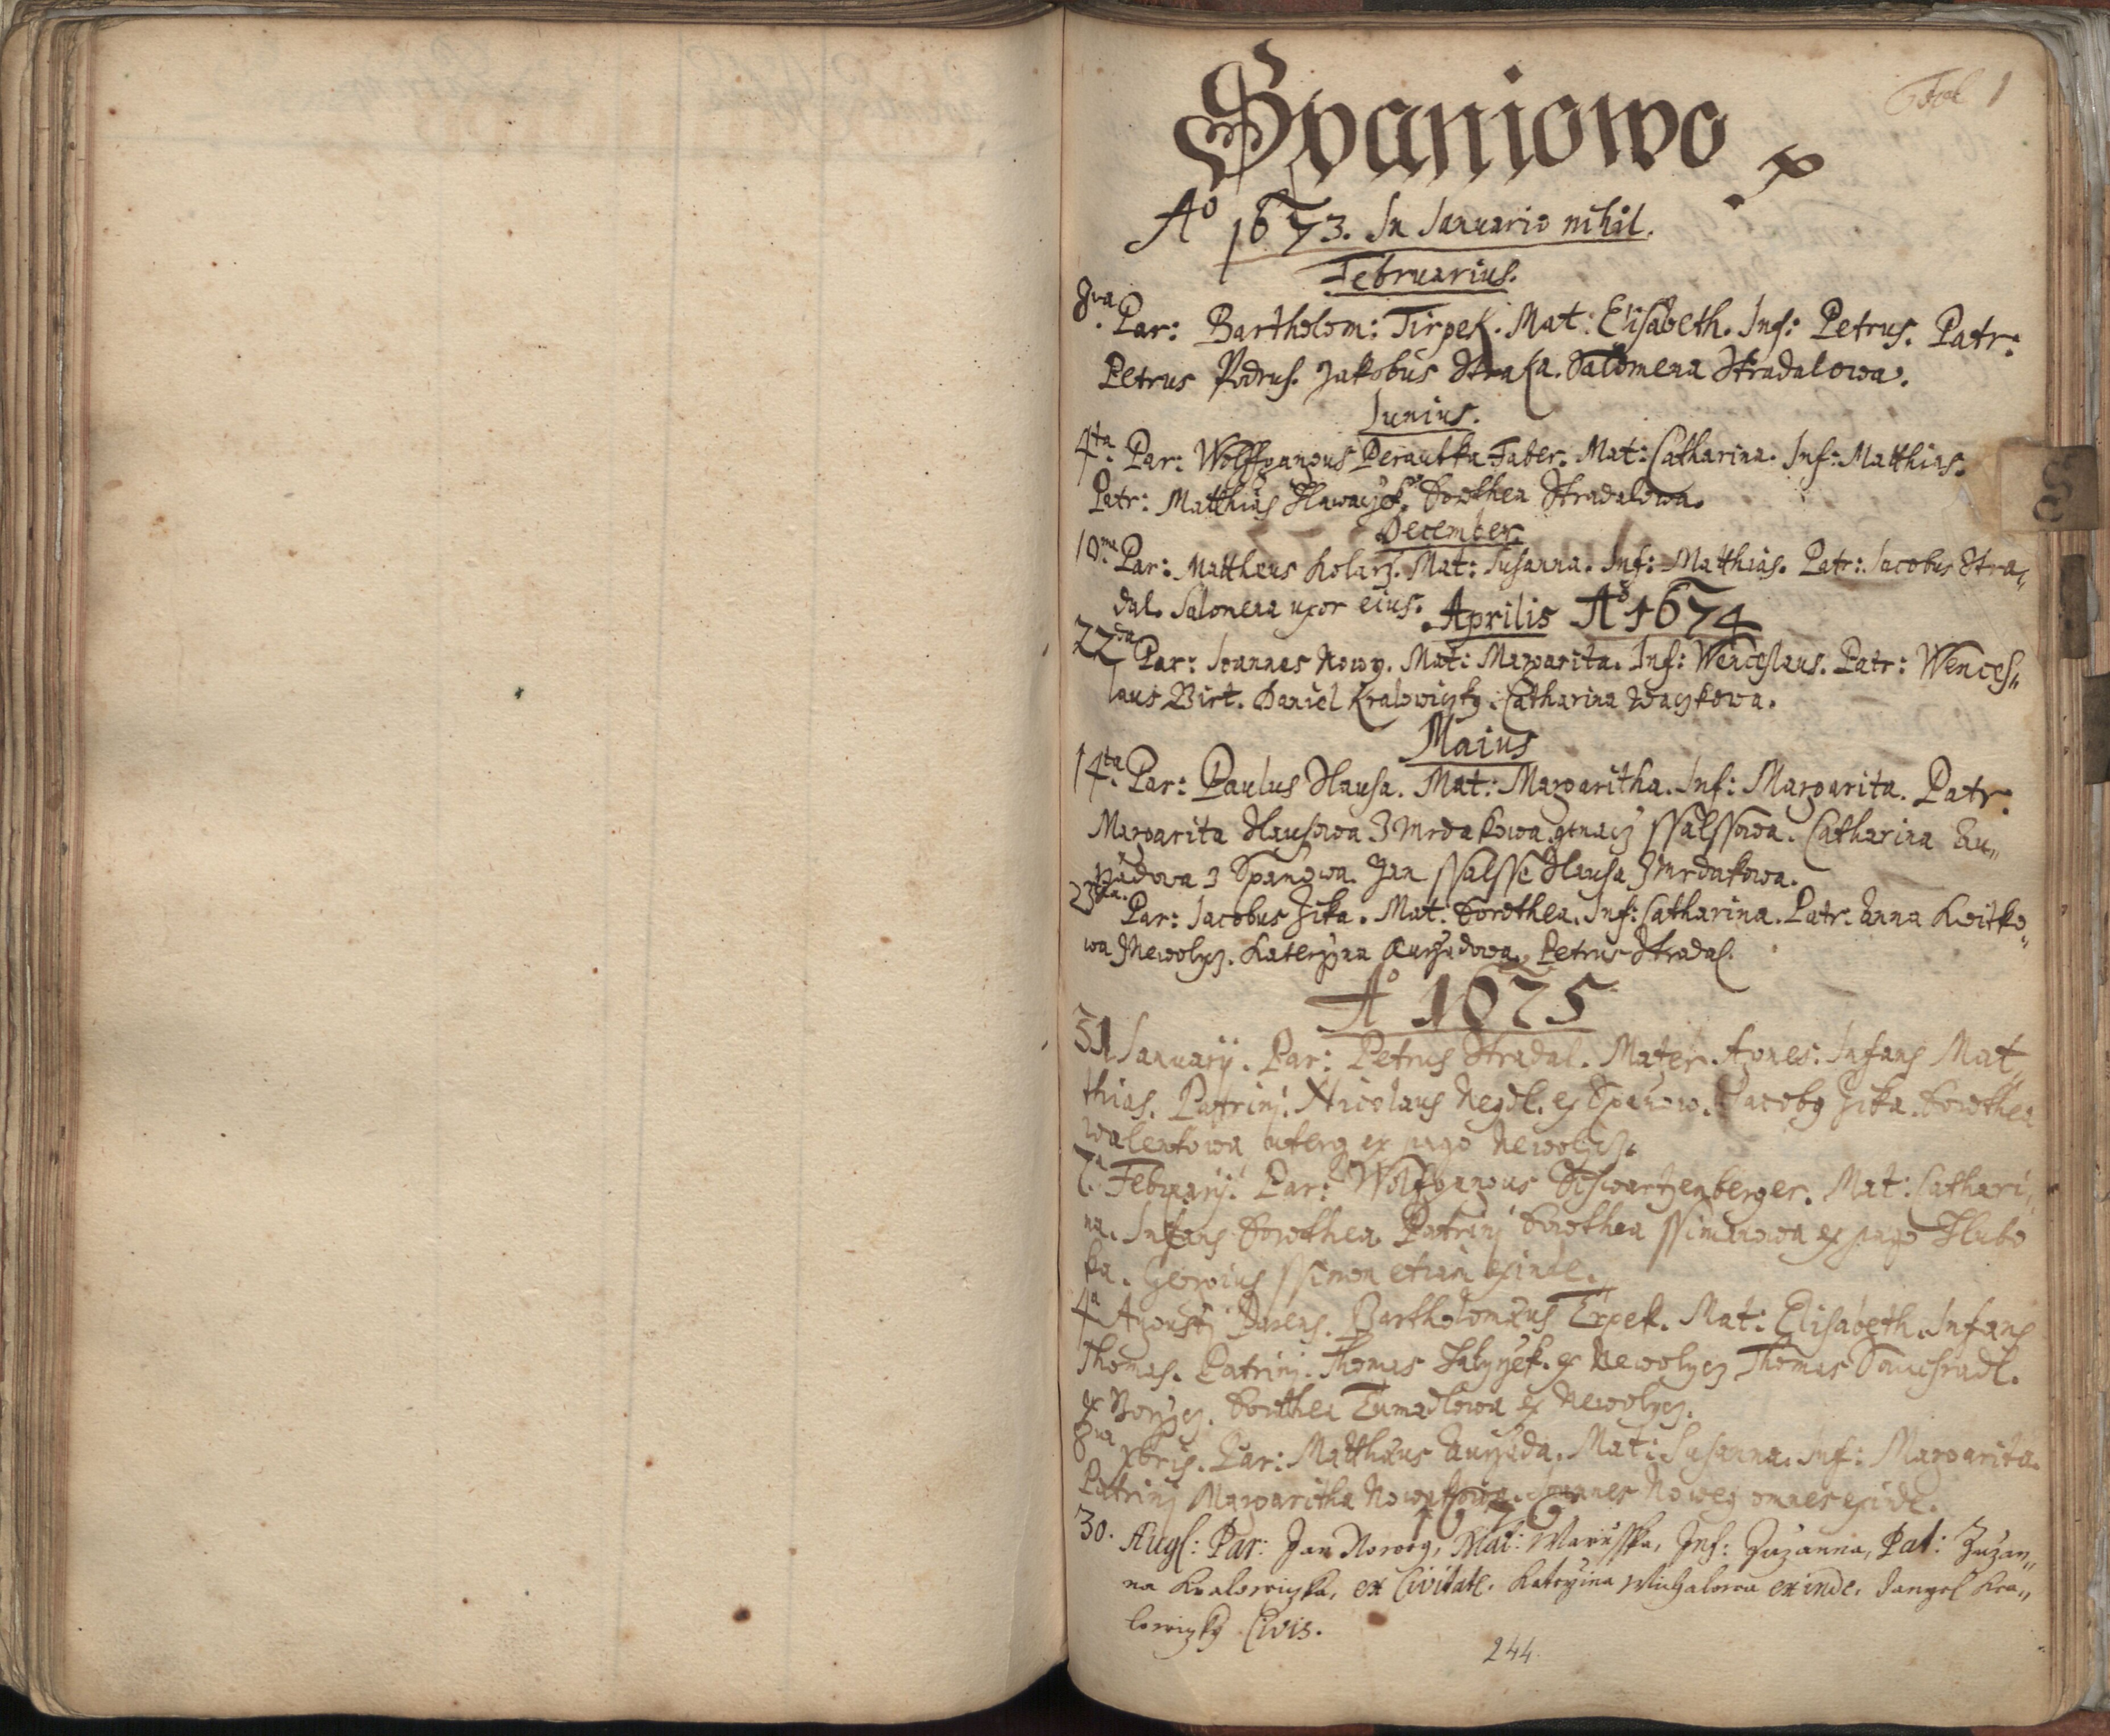 Fol 1
Spaniowo
Aº 1673. In Ianuario nihil.
Februarius.
8va. Par: Bartholom: Tirpek. Mat: Elisabeth. Inf: Petrus. Patr:
Petrus Jakobus Straka. Salomena Stradalowa.
Iunius.
4ta. Par: Wolffgangus Peraubka Faber. Mat: Catharina. Inf: Matthias.
Patr: Matthias Dorothea Stradalowa.
December.
10ma Par: Mattheus Kolarz. Mat: Susanna. Inf: Matthias. Patr: Iacobus Stra„
dal. Salomena uxor eius. Aprilis Aº 1674
22da Par: Ioannes Nowy. Mat: Margarita. Inf: Wenceslaus. Patr: Wences„
laus Birt. Daniel Kralowiczky. Catharina
Maius
14ta. Par: Paulus Hausa. Mat: Margaritha. Inf: Margarita. Patr:
Margarita Hausowa z Mrdakowa ginacz ssalssowa. Catharina Au„
z Spaniowa. Jan ssalsse Hausa z Mrdakowa.
23tia. Par: Iacobus Zika. Mat: Dorothea. Inf: Catharina. Patr: Anna Kwitko„
wa z Newolycz. Kateryna Petrus Stradal.
Aº 1675
31 Ianuarij. Par: Petrus Stradal. Mater. Agnes: Infans Mat„
thias. Patrinj. Nicolaus ex Spaniow. Jacobq Zika. Dorothea
ex pago Newolycz.
7a. Februarij. Par: Wolfgangus Schwartzenberger. Mat: Cathari„
na. Infans Dorothea Patrinj Dorothea ssimanowa ex pago Hlubo
ka. Georgius ssimon etiam exinde.
4a Augusti Parens. Bartholomæus Tirpek. Mat: Elisabeth. Infans
Thomas. Patrinj. Thomas ex Newolycz Thomas
ex Dorothea ex Newolycz.
8va Xbris. Par: Matthæus Mat: Susanna. Inf: Margarita.
Patrinj Margaritha Ioannes omnes exinde.
1676
30. Augl: Par: Jan Nowog, Mat: Marusska, Inf: Zuzanna, Pat: Zuzan„
na Kralowiczka, ex Civitate. Kateryina Michalowa exinde. Kra„
lowizky Civis.
244